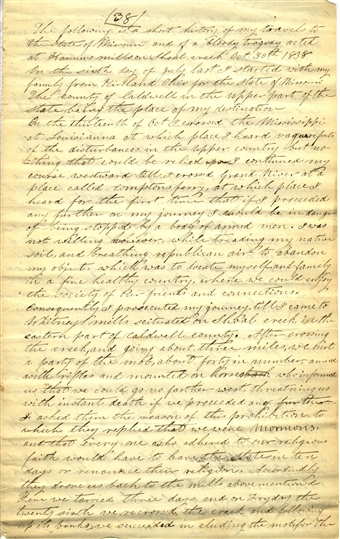 (38)
The following is a short history of my travels to
the State of Missouri and of a bloody tragedy acted
at Hauns mills on Shoal creek Oct 30th 1838
On the sixth day of July last I started with my
family from Kirtland Ohio for the State of Missouri
The County of Caldwell in the upper part of the
State being the place of my destination
On the thirteenth of Oct I crossed the Mississippi
at Louisianna at which place I heard vague reports
of the disturbances in the upper country but no-
thing that could be relied upon I continued my
course westward till I crossed Grand River at a
place called Comptons ferry at which place I
heard for the first time that if I proceeded
any further on my journey I would be in danger
of being stopped by a body of armed men. I was
not willing however, while treading my native
soil, and breathing republican air, to abandon
my object, which was to locate myself and family
in a fine healthy country, where we could enjoy
the society of our friends and connections.
Consequently I prosecuted my journey till I came to
Whitneys mills scituated on Shoal creek in the
eastern part of Caldwell county. After crossing
the creek and going about three miles, we met
a party of the mob, about forty in number, armed
with rifles and mounted on horseback who informed
us that we could go no farther west, threatning us
with instant death if we proceeded any further
I asked them the reason of this prohibition to
which they replied that we were Mormons,
and that every one who adhered to our religious
faith would have to leave the State in ten
days or renounce their religion. Accordingly
they drove us back to the mills above mentiond
Here we tarried three days, and on Fryday the
twenty sixth we recrossed the creek and following
up its banks, we succeeded in eluding the mob for the